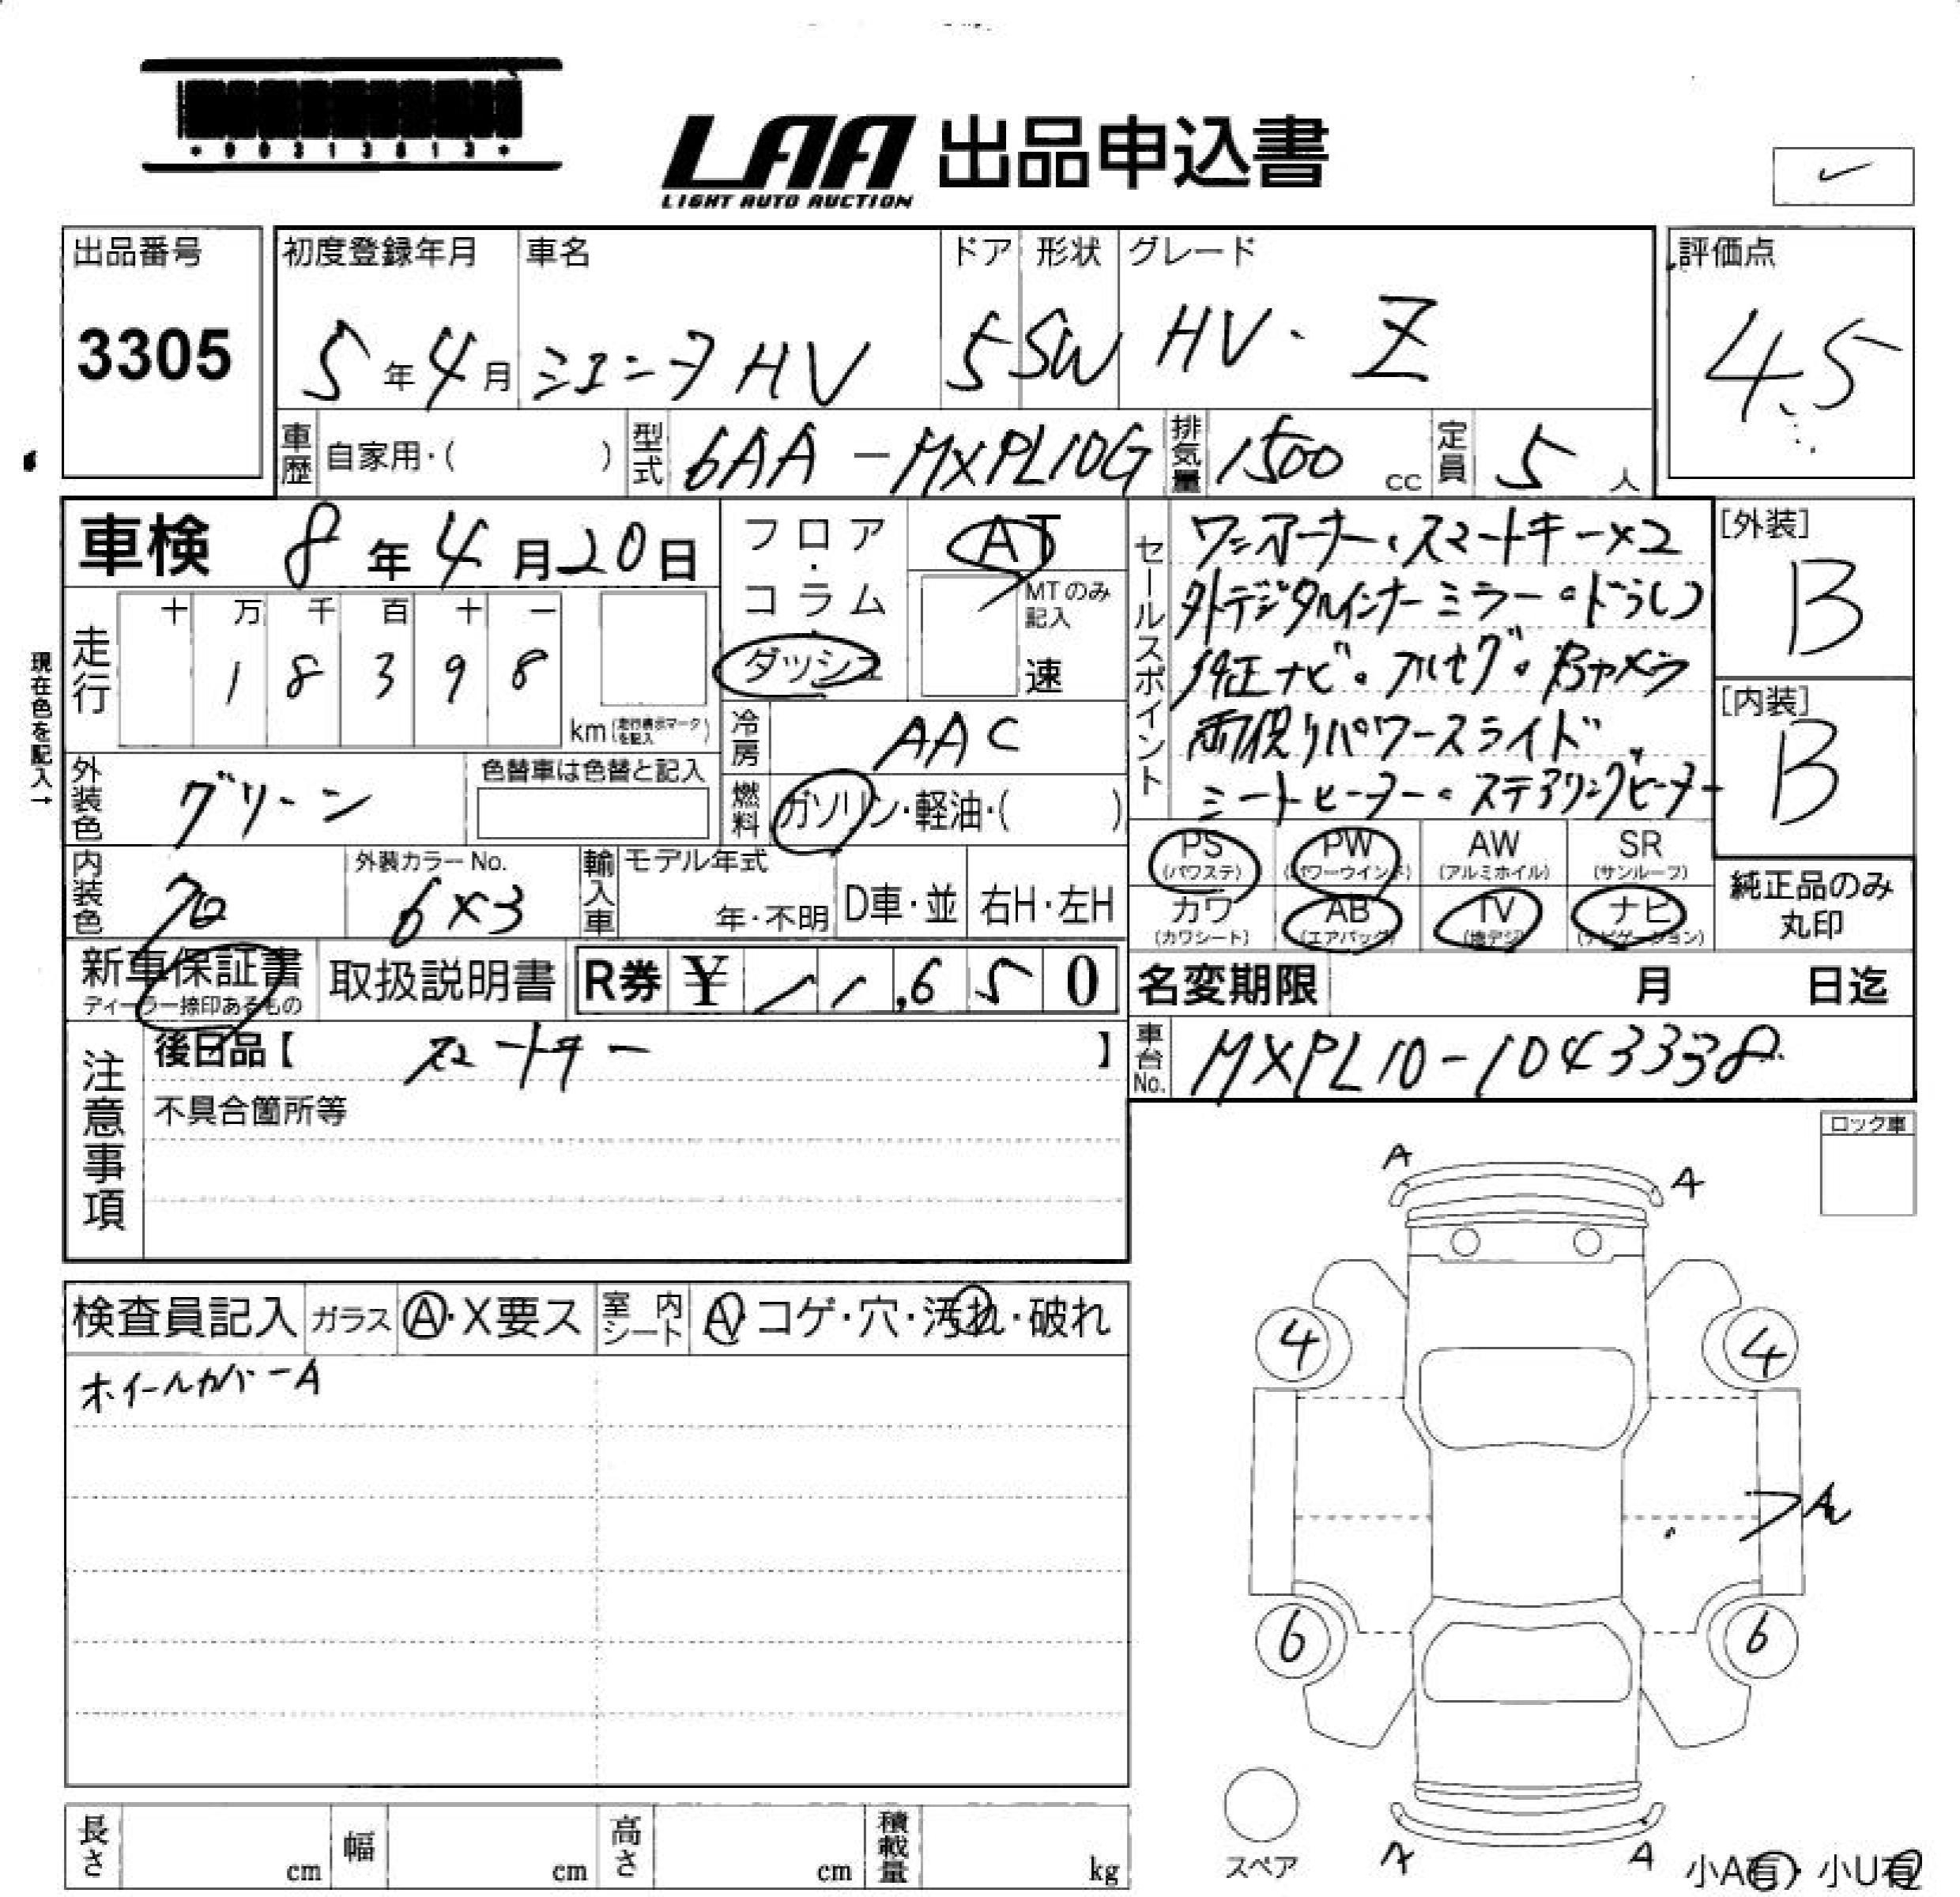 *90313613*
LAA 出品申込書
LIGHT AUTO AUCTION
出品番号
3305
初度登録年月
5年4月
車名
シエンタHV
ドア
5
形状
SW
グレード
HV・Z
評価点
4.5
車歴
自家用・( )
型式
6AA-MXPL10G
排気量
1500 cc
定員
5 人
車検 8年4月20日
走行
十 万 千 百 十 一
1 8 3 9 8
km(走行表示マークを記入)
現在色を記入→
フロア・コラム・ダッシュ
AT
MTのみ記入
速
冷房
AAC
燃料
ガソリン・軽油・( )
セールスポイント
ワンオーナー・スマートキー×2
外デジタルインナーミラー・ドラレコ
純正ナビ・フルセグ・Bカメラ
両側パワースライド
シートヒーター・ステアリングヒーター
[外装]
B
[内装]
B
外装色
グリーン
色替車は色替と記入
内装色
クロ
外装カラーNo.
6X3
輸入車
モデル年式
年・不明
D車・並
右H・左H
PS
(パワステ)
PW
(パワーウインド)
AW
(アルミホイル)
SR
(サンルーフ)
カワ
(カワシート)
AB
(エアバッグ)
TV
(地デジ)
ナビ
(ナビゲーション)
純正品のみ
丸印
新車保証書
ディーラー捺印あるもの
取扱説明書
R券 ¥ 11,650
名変期限 月 日迄
注意事項
後日品【 】
不具合箇所等
車台No.
MXPL10-1043338
ロック車
検査員記入
ガラス
A・X要ス
室内シート
A・コゲ・穴・汚れ・破れ
ホイールカバーA
A
A
4
4
6
6
A
A
スペア
小A有・小U有
長さ cm
幅 cm
高さ cm
積載量 kg